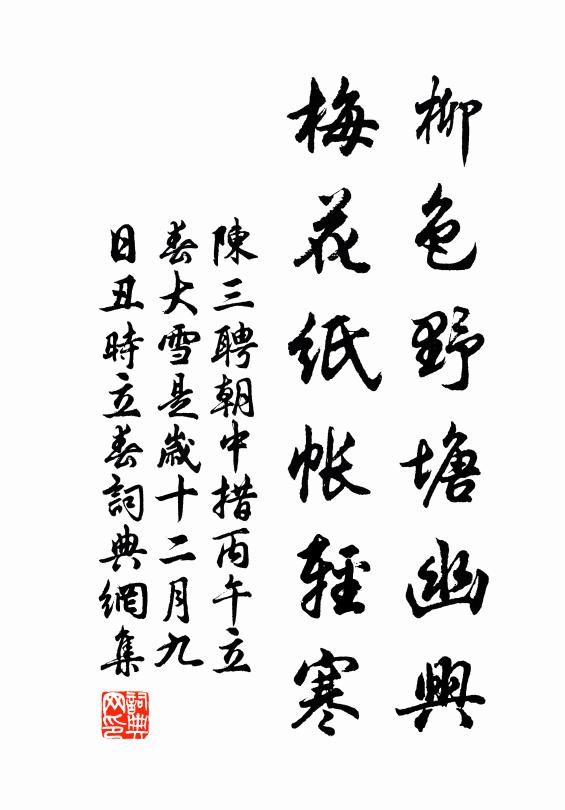 柳色野塘幽興
梅花紙帐輕寒
陳三聘朝中措丙午立
春大雪是歲十二月九
日丑時立春詞典網集
詞典网印